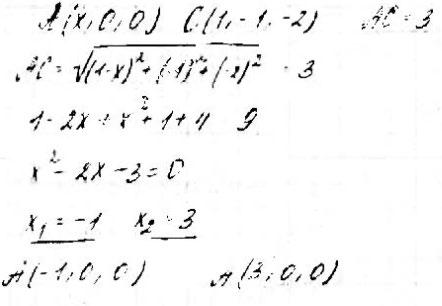 A(x,0,0) C(1,-1,-2) AC=3
AC=√((1-x)²+(-1)²+(-2)²) = 3
1-2x+x²+1+4 9
x²-2x-3=0
x₁=-1 x₂=3
A(-1,0,0) A(3,0,0)